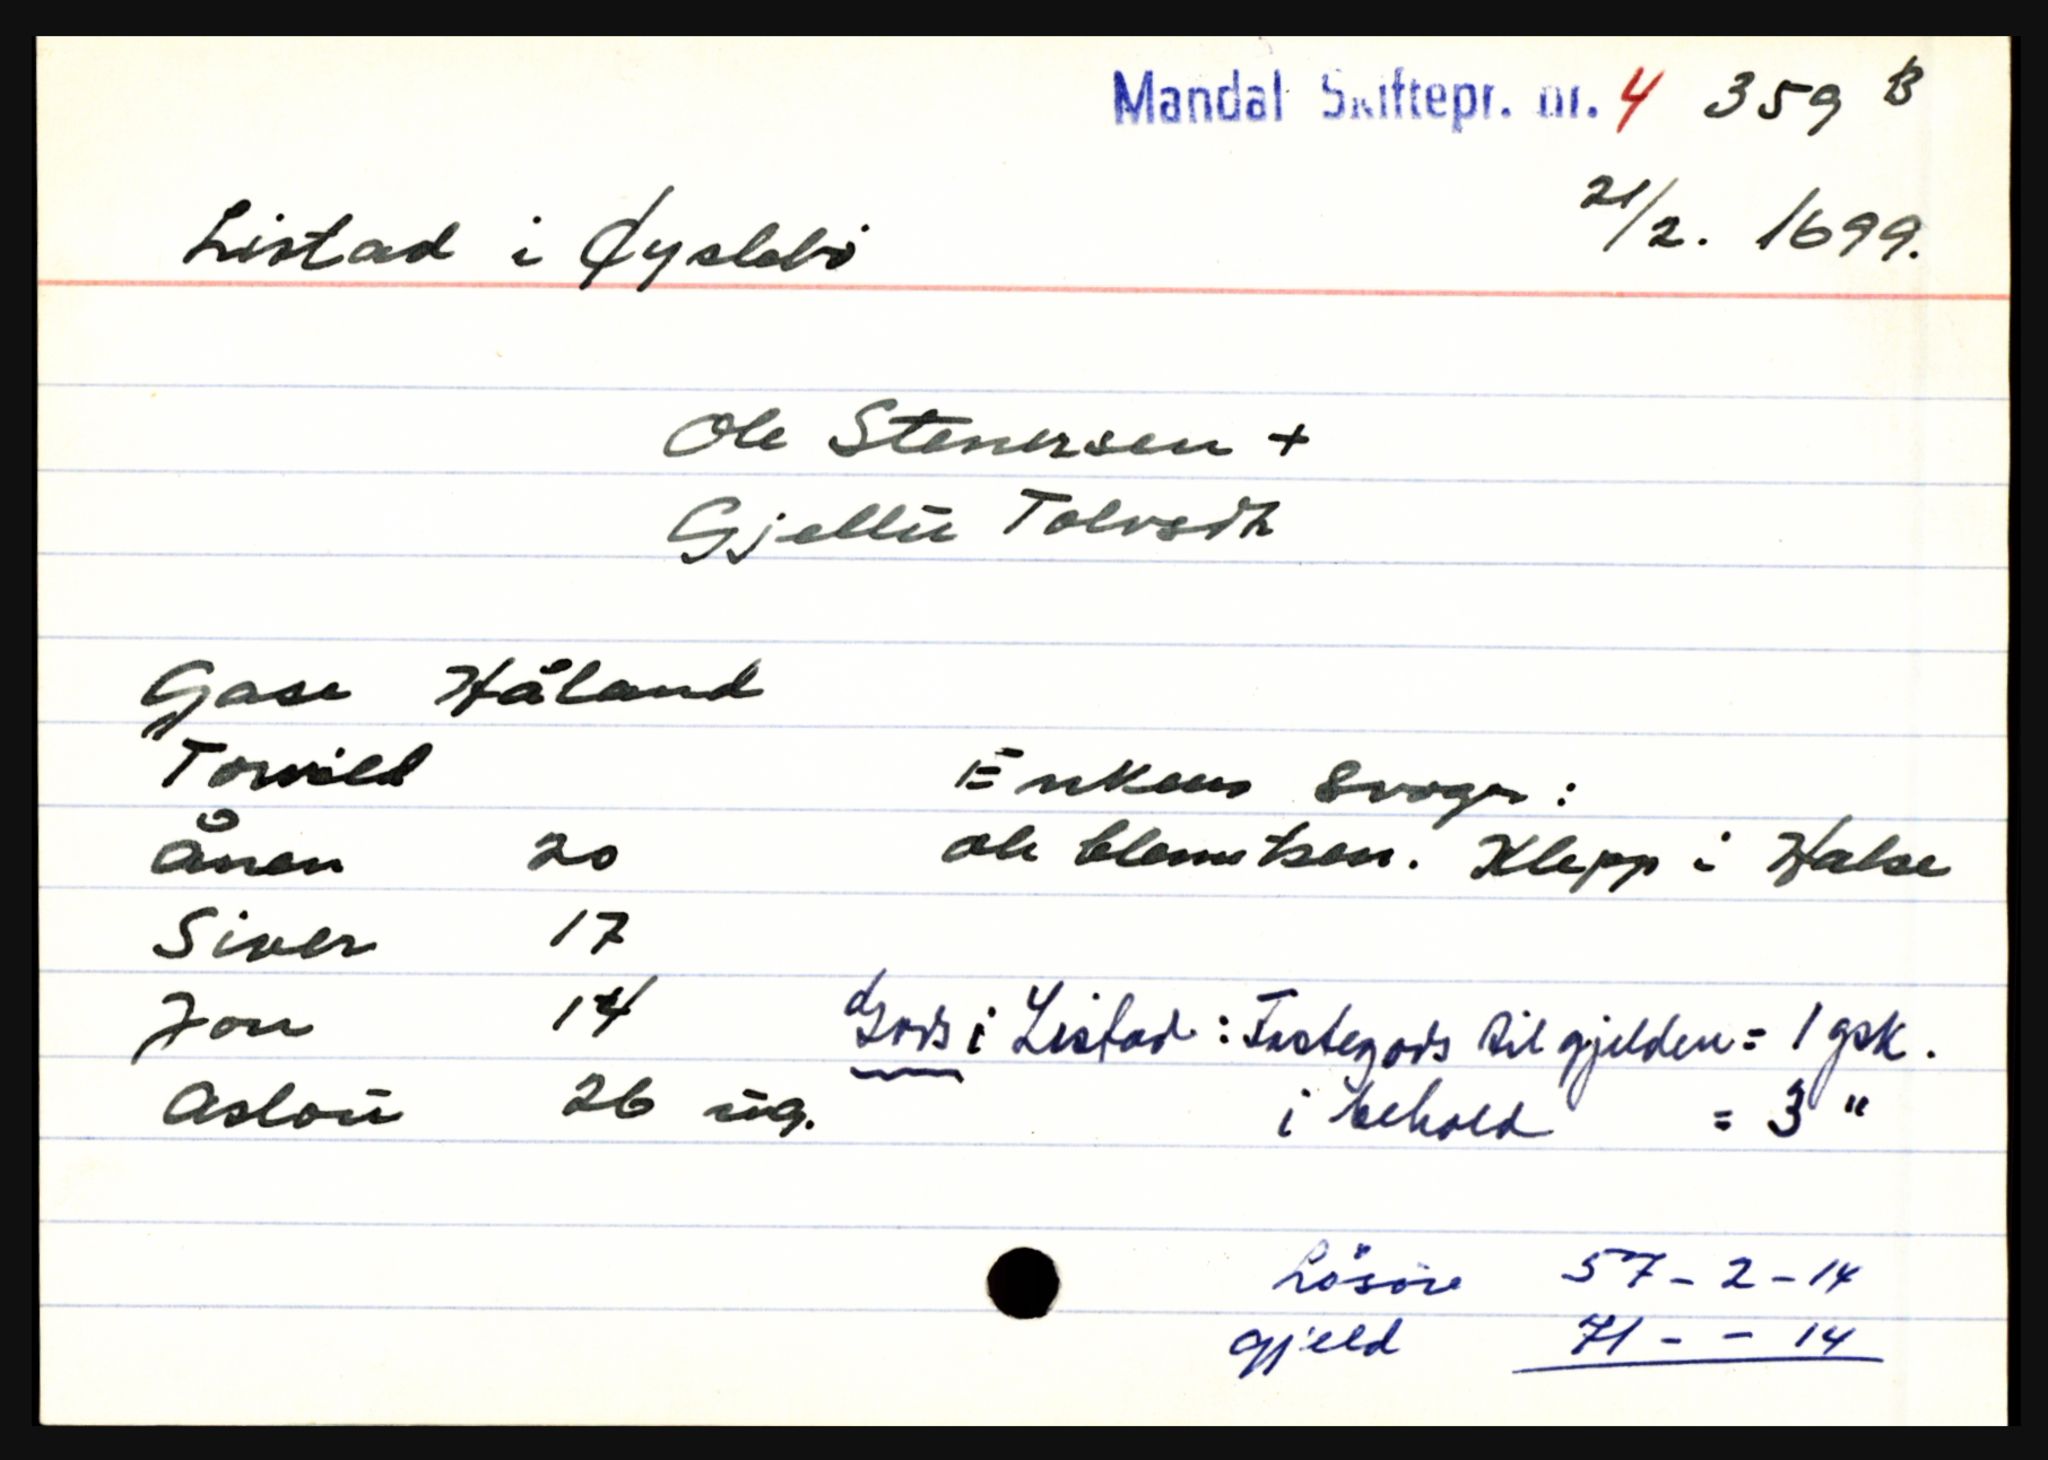 Mandal Skiftepr. nr. 4 359 B
21/2. 1699.
Listad i Øyslebö
Ole Stenersen +
Gjellu Tolvsdh
Gase Håland
Torvild
Ånen 20
Siver 17
Jon 14
Aslou 26 ug.
Enkens Svoger:
ole Clemetsen. Klepp i Halse
Gods i Listad: Festegods til gjelden = 1 gsk.
i behold = 3 "
Lösöre 57 - 2 - 14
gjeld 71 - - 14